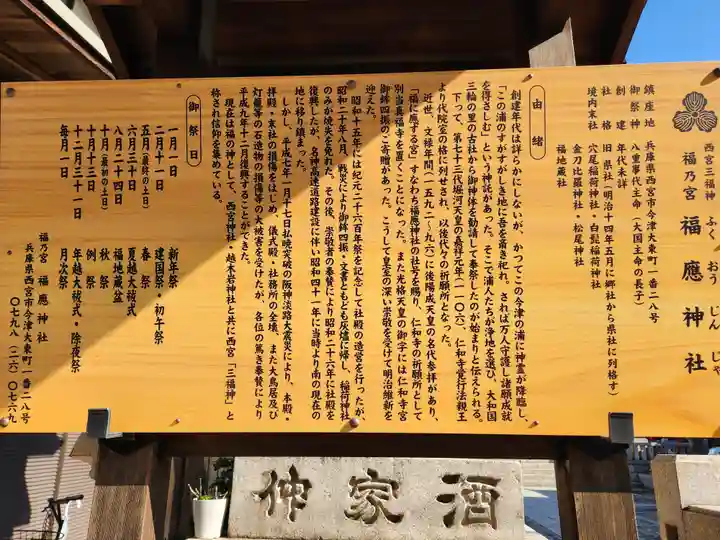 西宮三福神
福乃宮 福應神社
ふく おう じん じゃ
鎮座地 兵庫県西宮市今津大東町一番二八号
御祭神 八重事代主命(大国主命の長子)
創建 年代未詳
社格 旧県社(明治十四年五月に郷社から県社に列格す)
境内末社 穴尾稲荷神社・白髭稲荷神社
金刀比羅神社・松尾神社
福地蔵社
由緒
創建年代は詳らかにしないが、かつてこの今津の浦に神霊が降臨し、
「この浦のすがすがしき地に吾を斎き祀れ。されば万人守護し諸願成就
を得さしむ」という神託があった。そこで浦人たちが浄地を選び、大和国
三輪の里の古社から御神体を勧請して奉祭したのが始まりと伝えられる。
下って、第七十三代堀河天皇の嘉祥元年(一一〇六)、仁和寺覚行法親王
より代院室の格に列せられ、以後代々の祈願所となった。
近世、文禄年間(一五九二〜九六)に後陽成天皇の名代参拝があり、
「福に應ずる宮」すなわち福應神社の社号を賜り、仁和寺の祈願所として
別当真福寺を置くことになった。また光格天皇の御宇には仁和寺宮
御鉾四振のご寄贈があった。こうして皇室の深い崇敬を受けて明治維新を
迎えた。
昭和十五年には紀元二千六百年祭を記念して社殿の造営を行ったが、
昭和二十年八月、戦災により御鉾四振・文書ともども灰燼に帰し、稲荷神社
のみが焼失を免れた。その後、崇敬者の奉賛により昭和二十六年に社殿を
復興したが、名神高速道路建設に伴い昭和四十一年に当時より南の現在の
地に移り鎮まった。
しかし、平成七年一月十七日払暁突破の阪神淡路大震災により、本殿・
拝殿・末社の損傷をはじめ、儀式殿・社務所の全壊、また大鳥居及び
灯籠等の石造物の損傷等の大被害を受けたが、各位の篤き奉賛により
平成九年十二月復興することができた。
現在は福の神として、西宮神社・越木岩神社と共に西宮「三福神」と
称され信仰を集めている。
御祭日
一月一日 新年祭
二月十一日 建国祭・初午祭
五月(最終の土日) 春祭
六月三十日 夏越大祓式
八月二十四日 福地蔵盆
十月(最初の土日) 秋祭
十月十三日 例祭
十二月三十一日 年越大祓式・除夜祭
毎月一日 月次祭
福乃宮 福應神社
兵庫県西宮市今津大東町一番二八号
〇七九八(二六)〇七六九
酒家仲